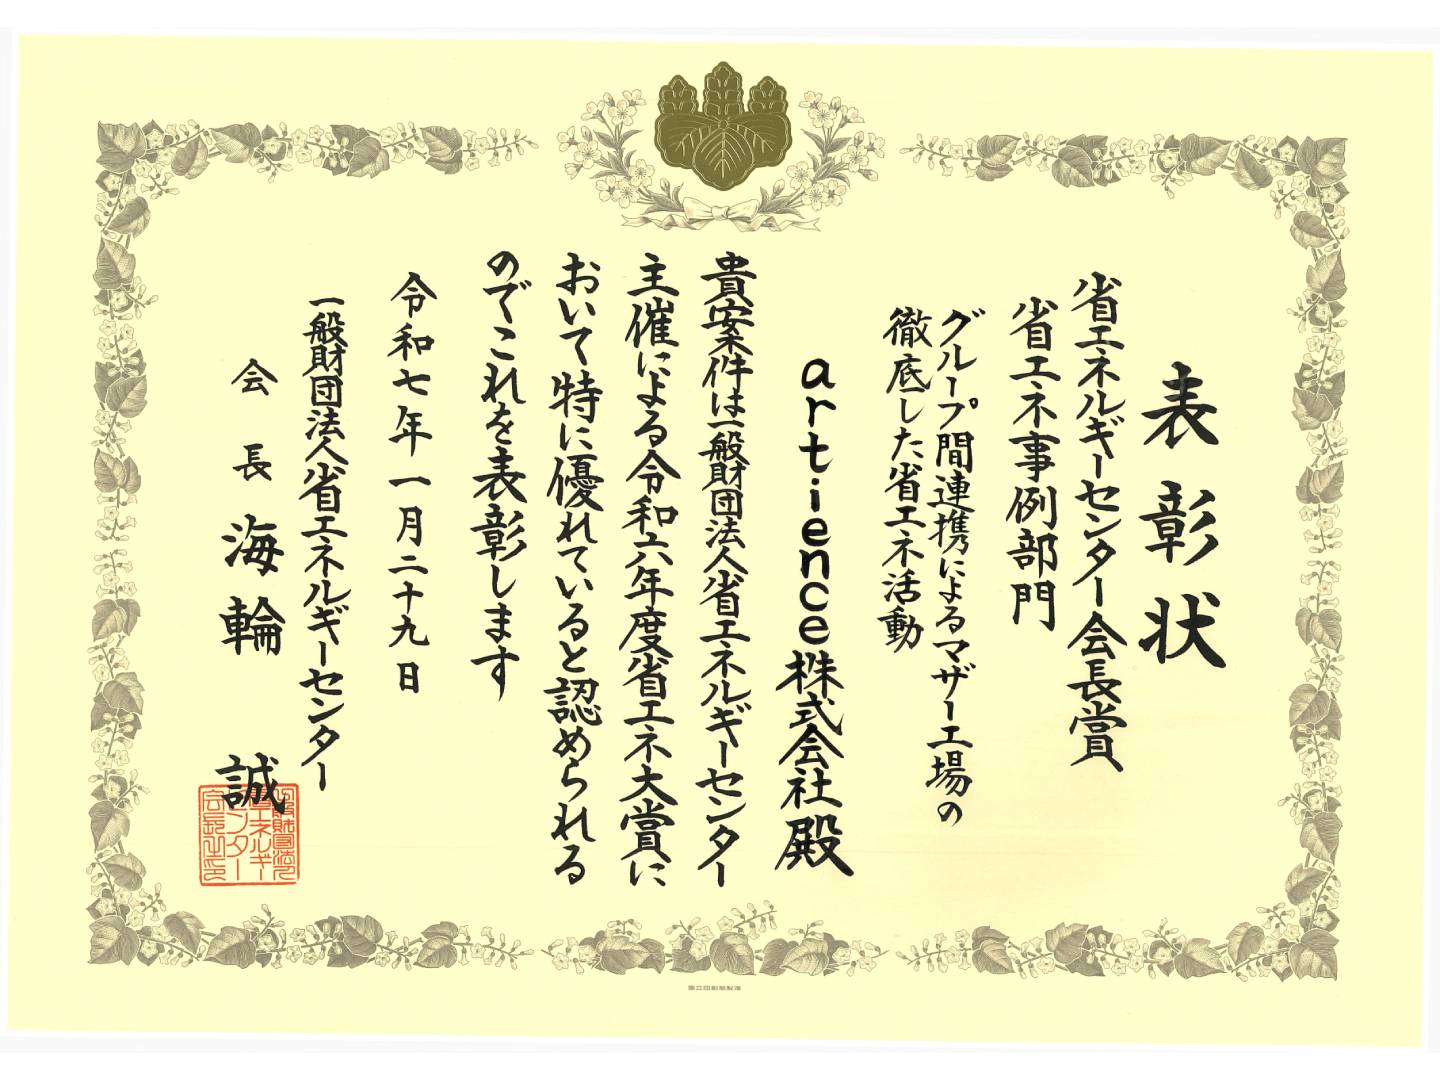 表彰状
省エネルギーセンター会長賞
省エネ事例部門
グループ間連携によるマザー工場の
徹底した省エネ活動
artience株式会社殿
貴案件は一般財団法人省エネルギーセンター
主催による令和六年度省エネ大賞に
おいて特に優れていると認められる
のでこれを表彰します
令和七年一月二十九日
一般財団法人省エネルギーセンター
会長 海輪 誠
一般財団法人
省エネルギー
センター
会長之印
国立印刷局製造